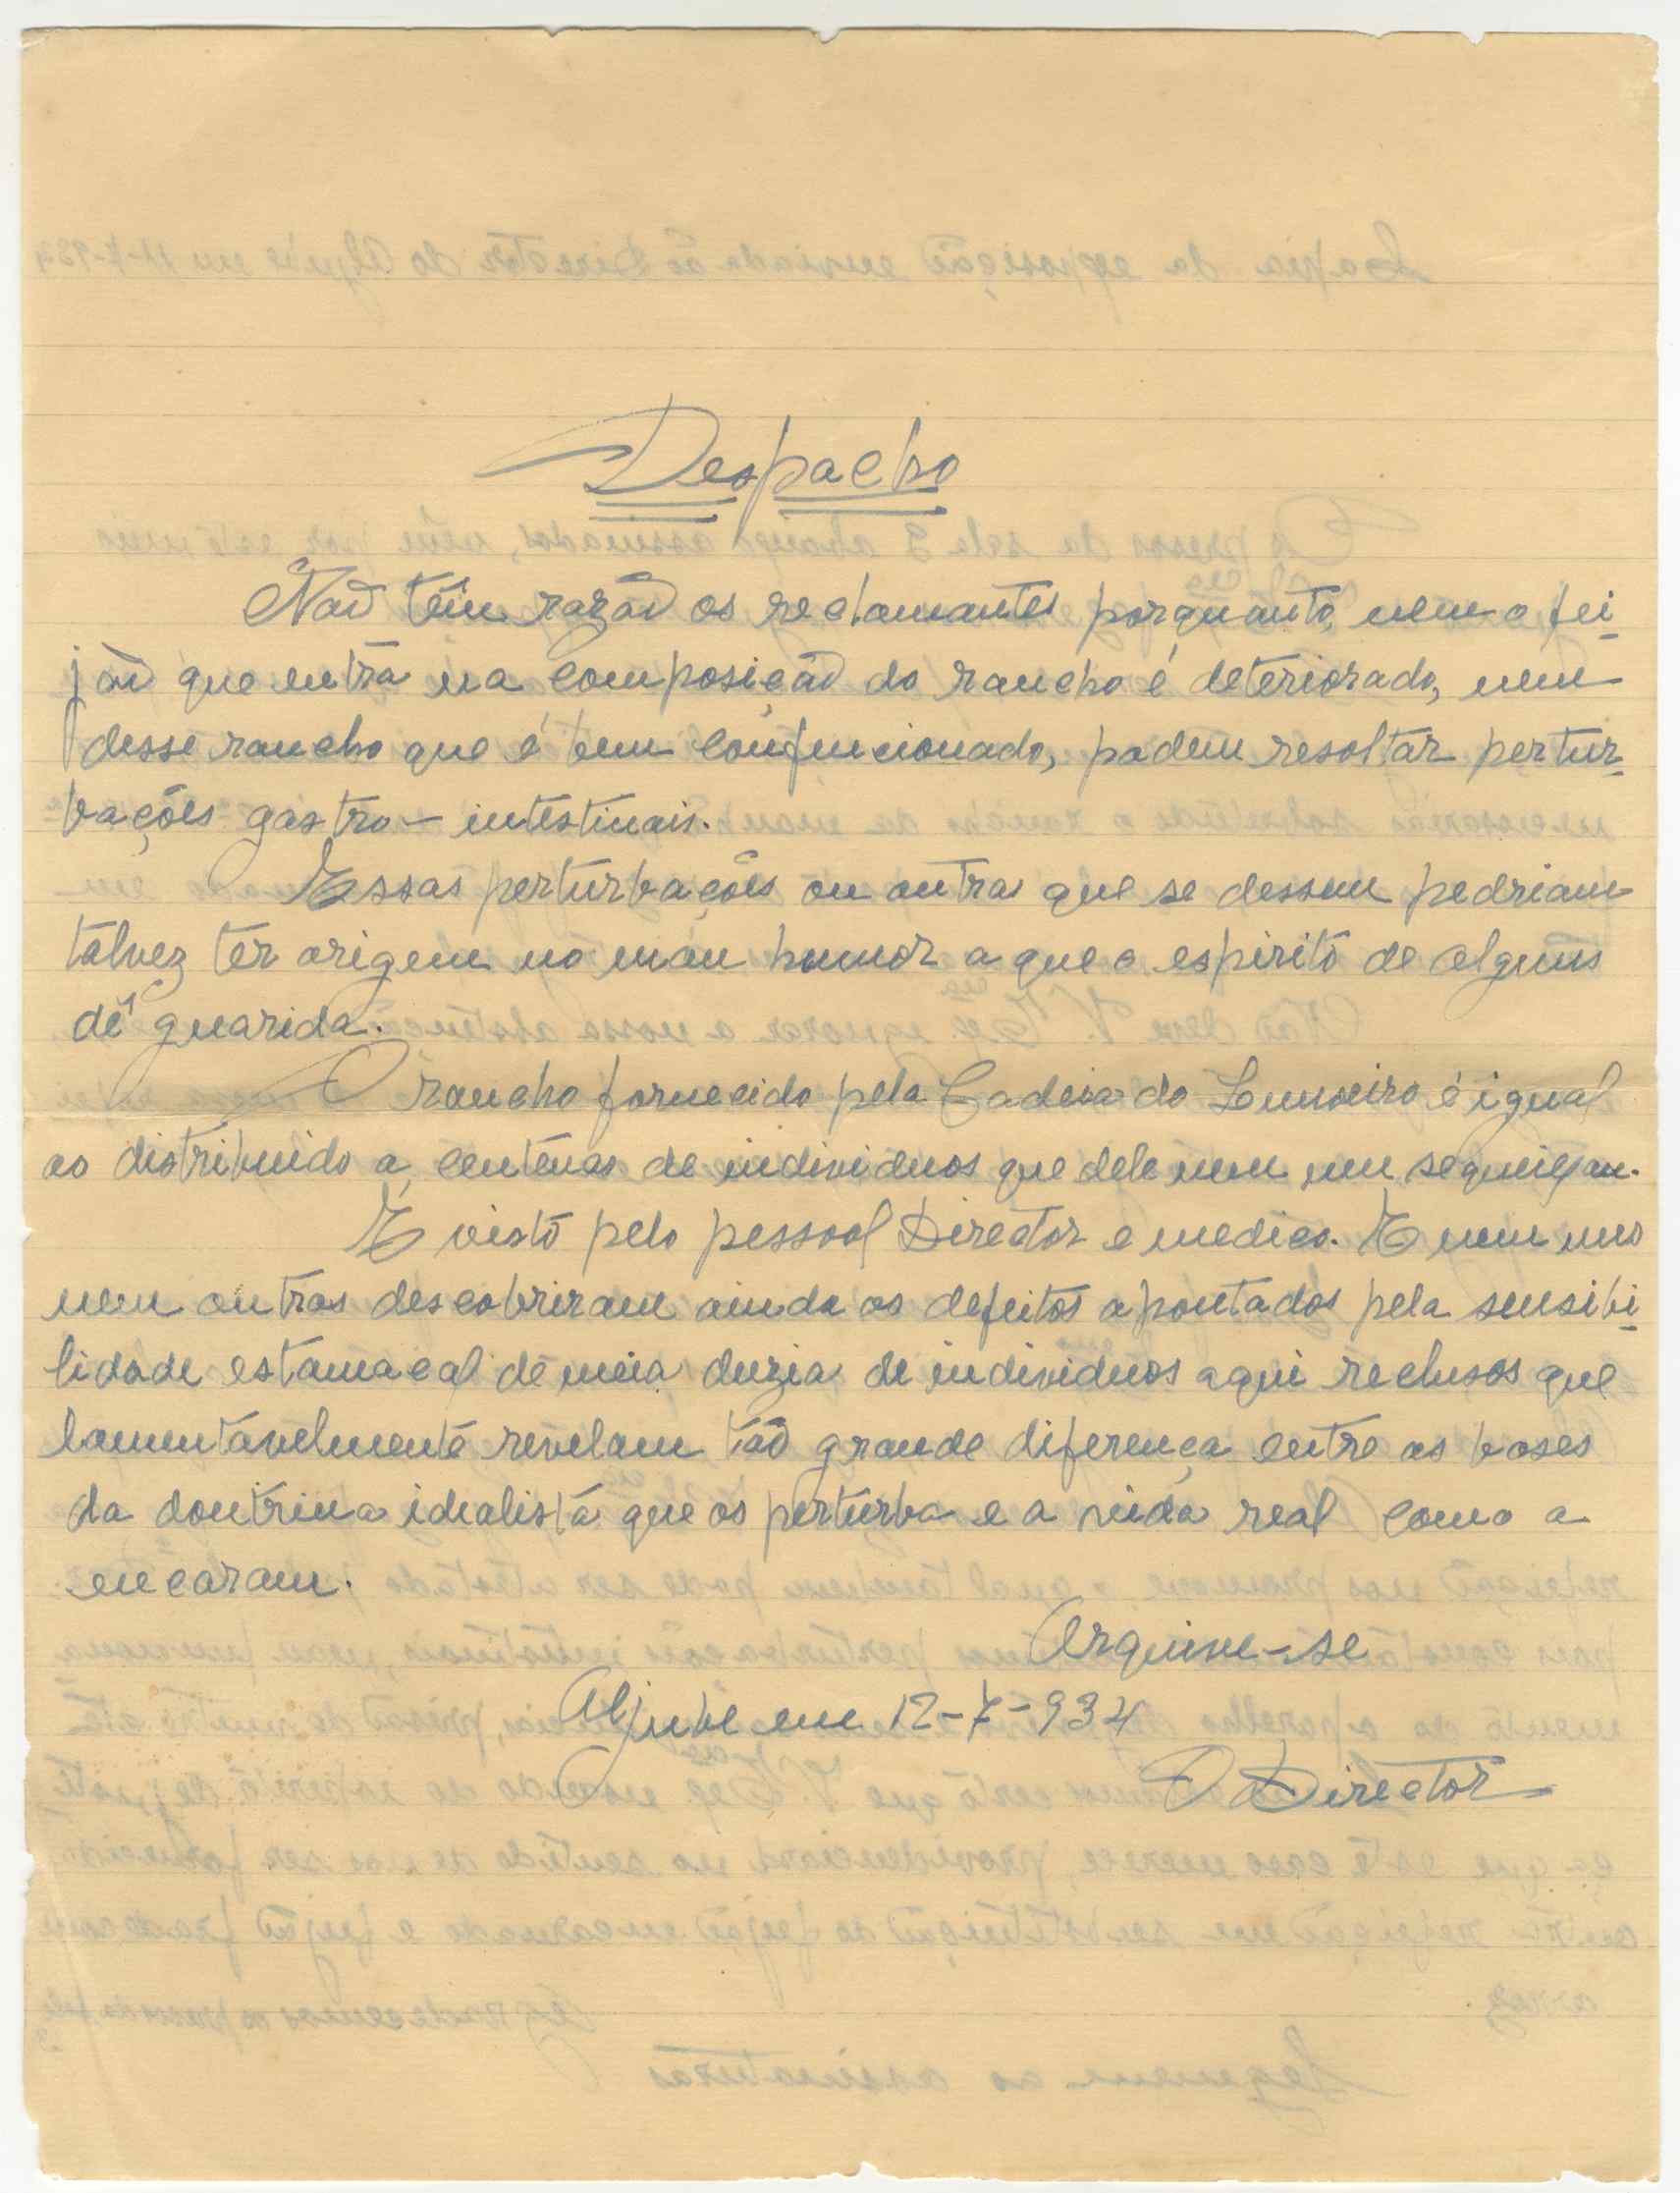 Despacho
Não têm razão os reclamantes porquanto, nem o fei-
jão que entra na composição do rancho é deteriorado, nem
desse rancho que é bem confuncionado, podem resoltar pertur-
bações gastro-intestinais.
Essas perturbações ou outras que se dessem pedriam
talvez ter origem no mau humor a que o espirito de alguns
dê guarida.
O rancho fornecido pela Cadeia do Limoeiro é igual
ao distribuido a centenas de individuos que dele nem um se queixam.
É visto pelo pessoal Director e medico. E nem uns
nem outros descobriram ainda os defeitos apontados pela sensibi-
lidade estamacal de meia duzia de individuos aqui reclusos que
lamentavelmente revelam tão grande diferença entre as bases
da doutrina idealista que os perturba e a vida real como a
encaram.
Arquive-se
Aljube em 12-7-934
O Director